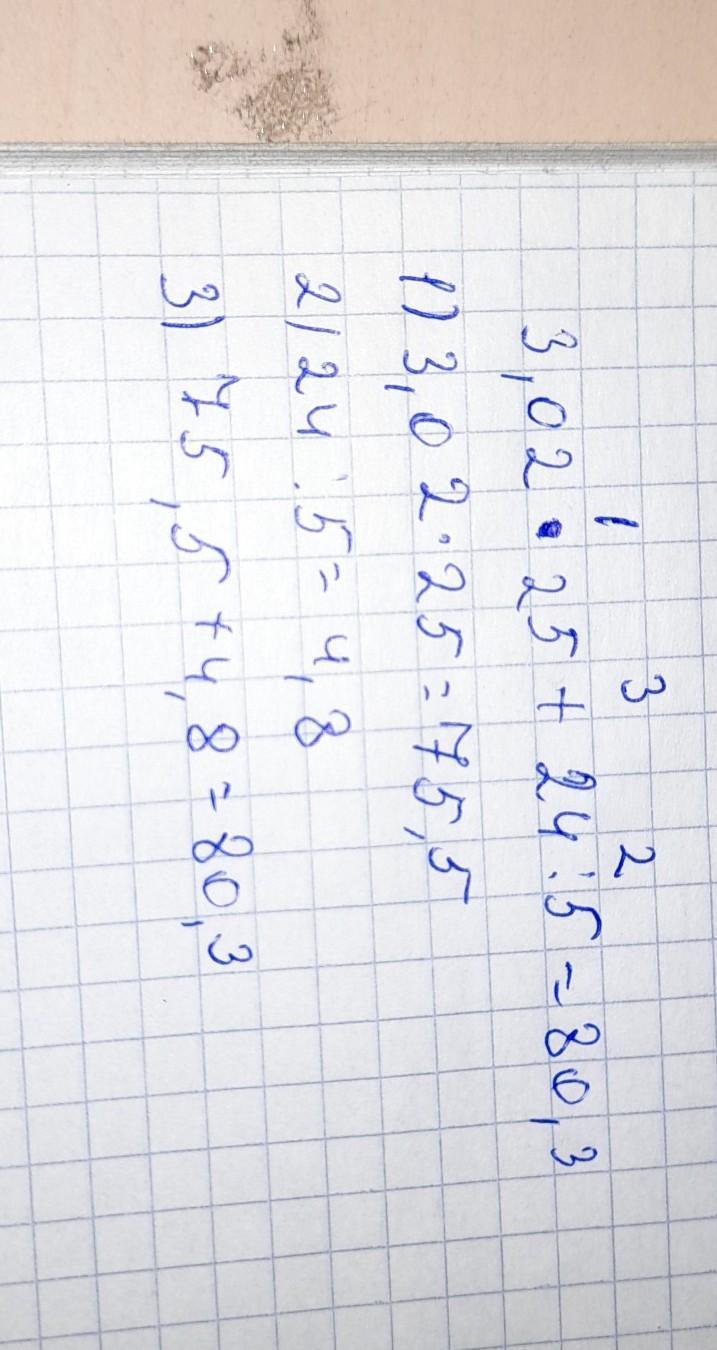 1 3 2
3,02 · 25 + 24 : 5 = 80,3
1) 3,02 · 25 = 75,5
2) 24 : 5 = 4,8
3) 75,5 + 4,8 = 80,3